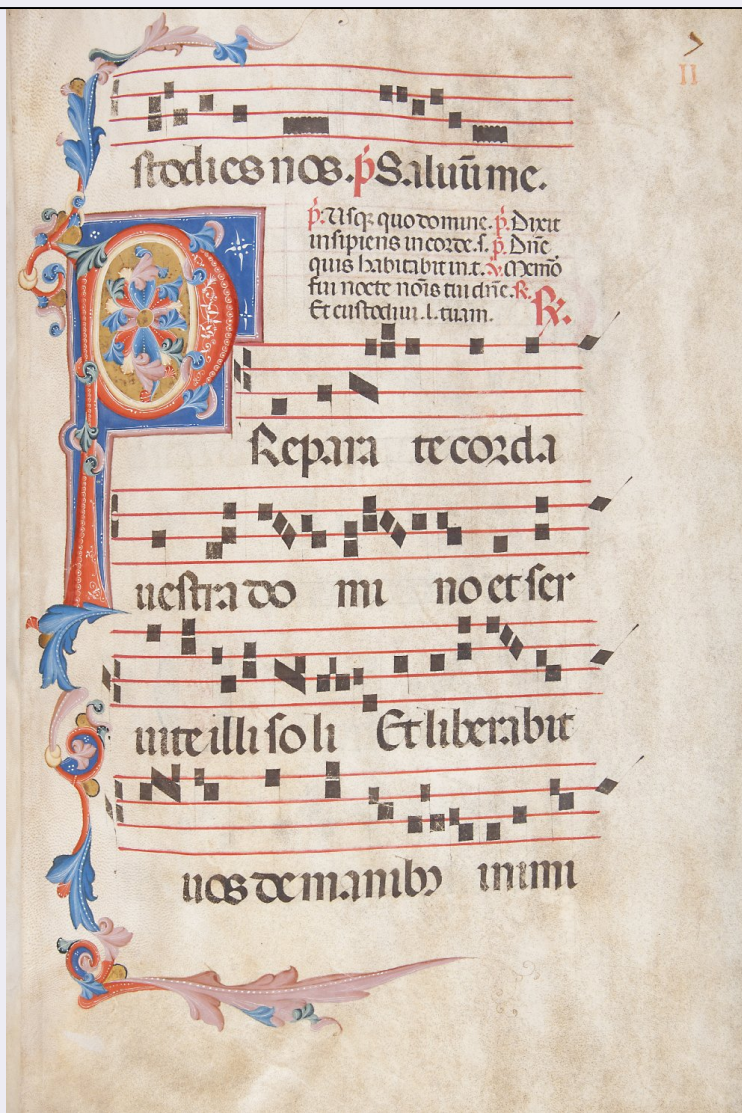 II
stodies nos. p̄ Saluū me.
p̄. Usqꝫ quo domine. p̄. Dixit
insipiens in corde. s. p̄. Dn̄e
quis habitabit in. t. ℣. Memō
fui nocte nōis tui dn̄e. ℟.
Et custodiui. l. tuam. ℟.
PRepara te corda
uestra do mi no et ser
uite illi so li Et liberabit
uos de manibꝫ inimi